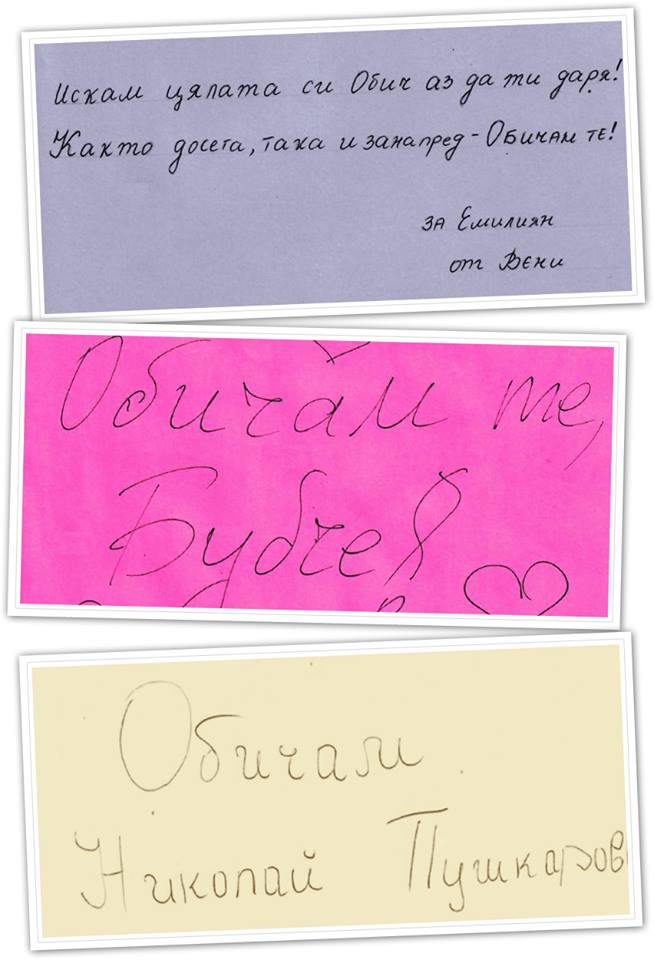 Искам цялата си Обич аз да ти даря!
Както досега, така и занапред - Обичам те!
за Емилиян
от Вени
Обичам те,
Бубчев
Обичам
Николай Пушкаров